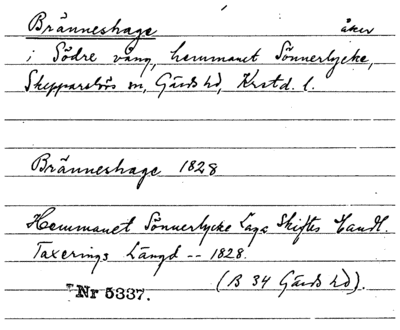 Bränneshage åker
i Södre vång, hemmanet Sönnerlycke,
Skepparslövs sn, Gärds hd, Krstd. l.
Bränneshage 1828
Hemmanet Sönnerlycke Laga Skiftes Handl.
Taxerings Längd -- 1828.
(B 34 Gärds hd).
Nr 5337.